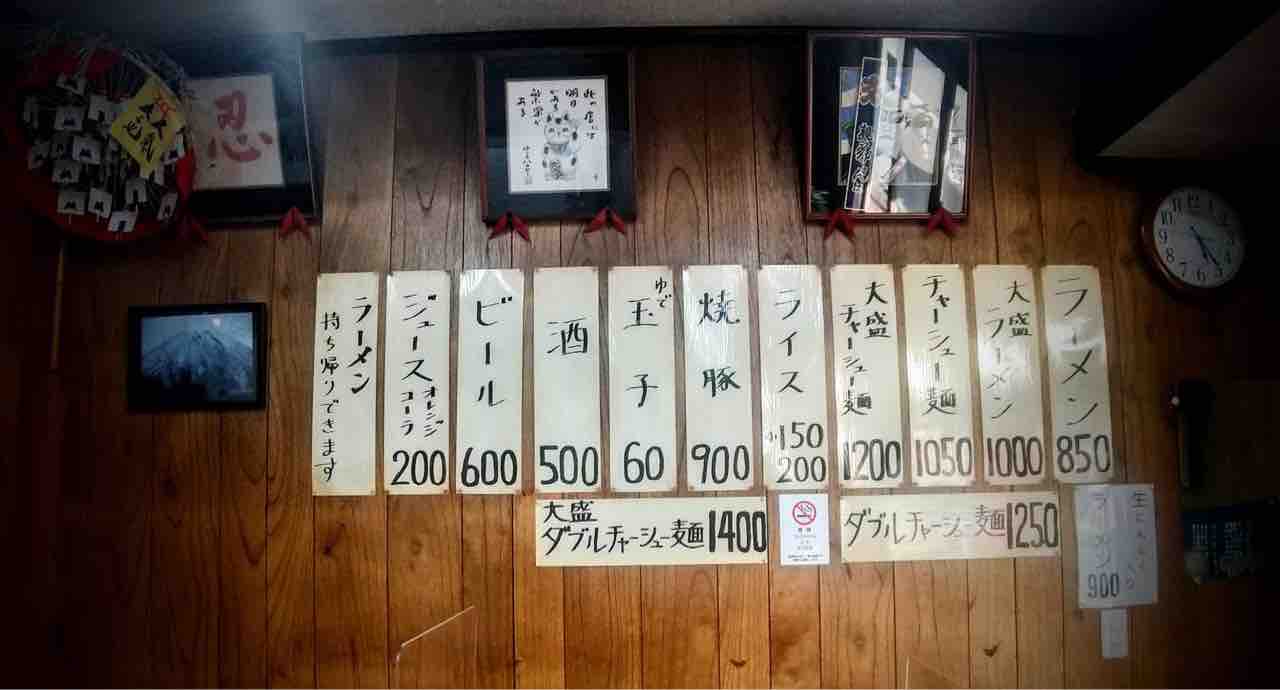 ラーメン
850
大盛
ラーメン
1000
チャーシュー麺
1050
大盛
チャーシュー麺
1200
ライス
小150
200
焼豚
900
ゆで
玉子
60
酒
500
ビール
600
ジュース
オレンジ
コーラ
200
ラーメン
持ち帰りできます
大盛
ダブルチャーシュー麺1400
ダブルチャーシュー麺1250
生にんにく入り
ラーメン
900
忍
此の店には
明日
がある